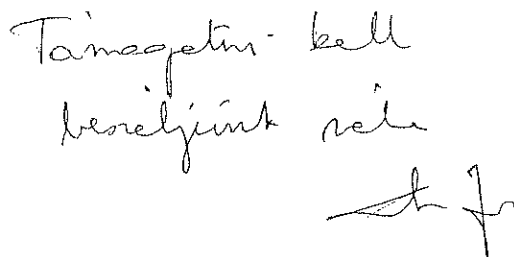 Támogatni kell
beszéljünk róla